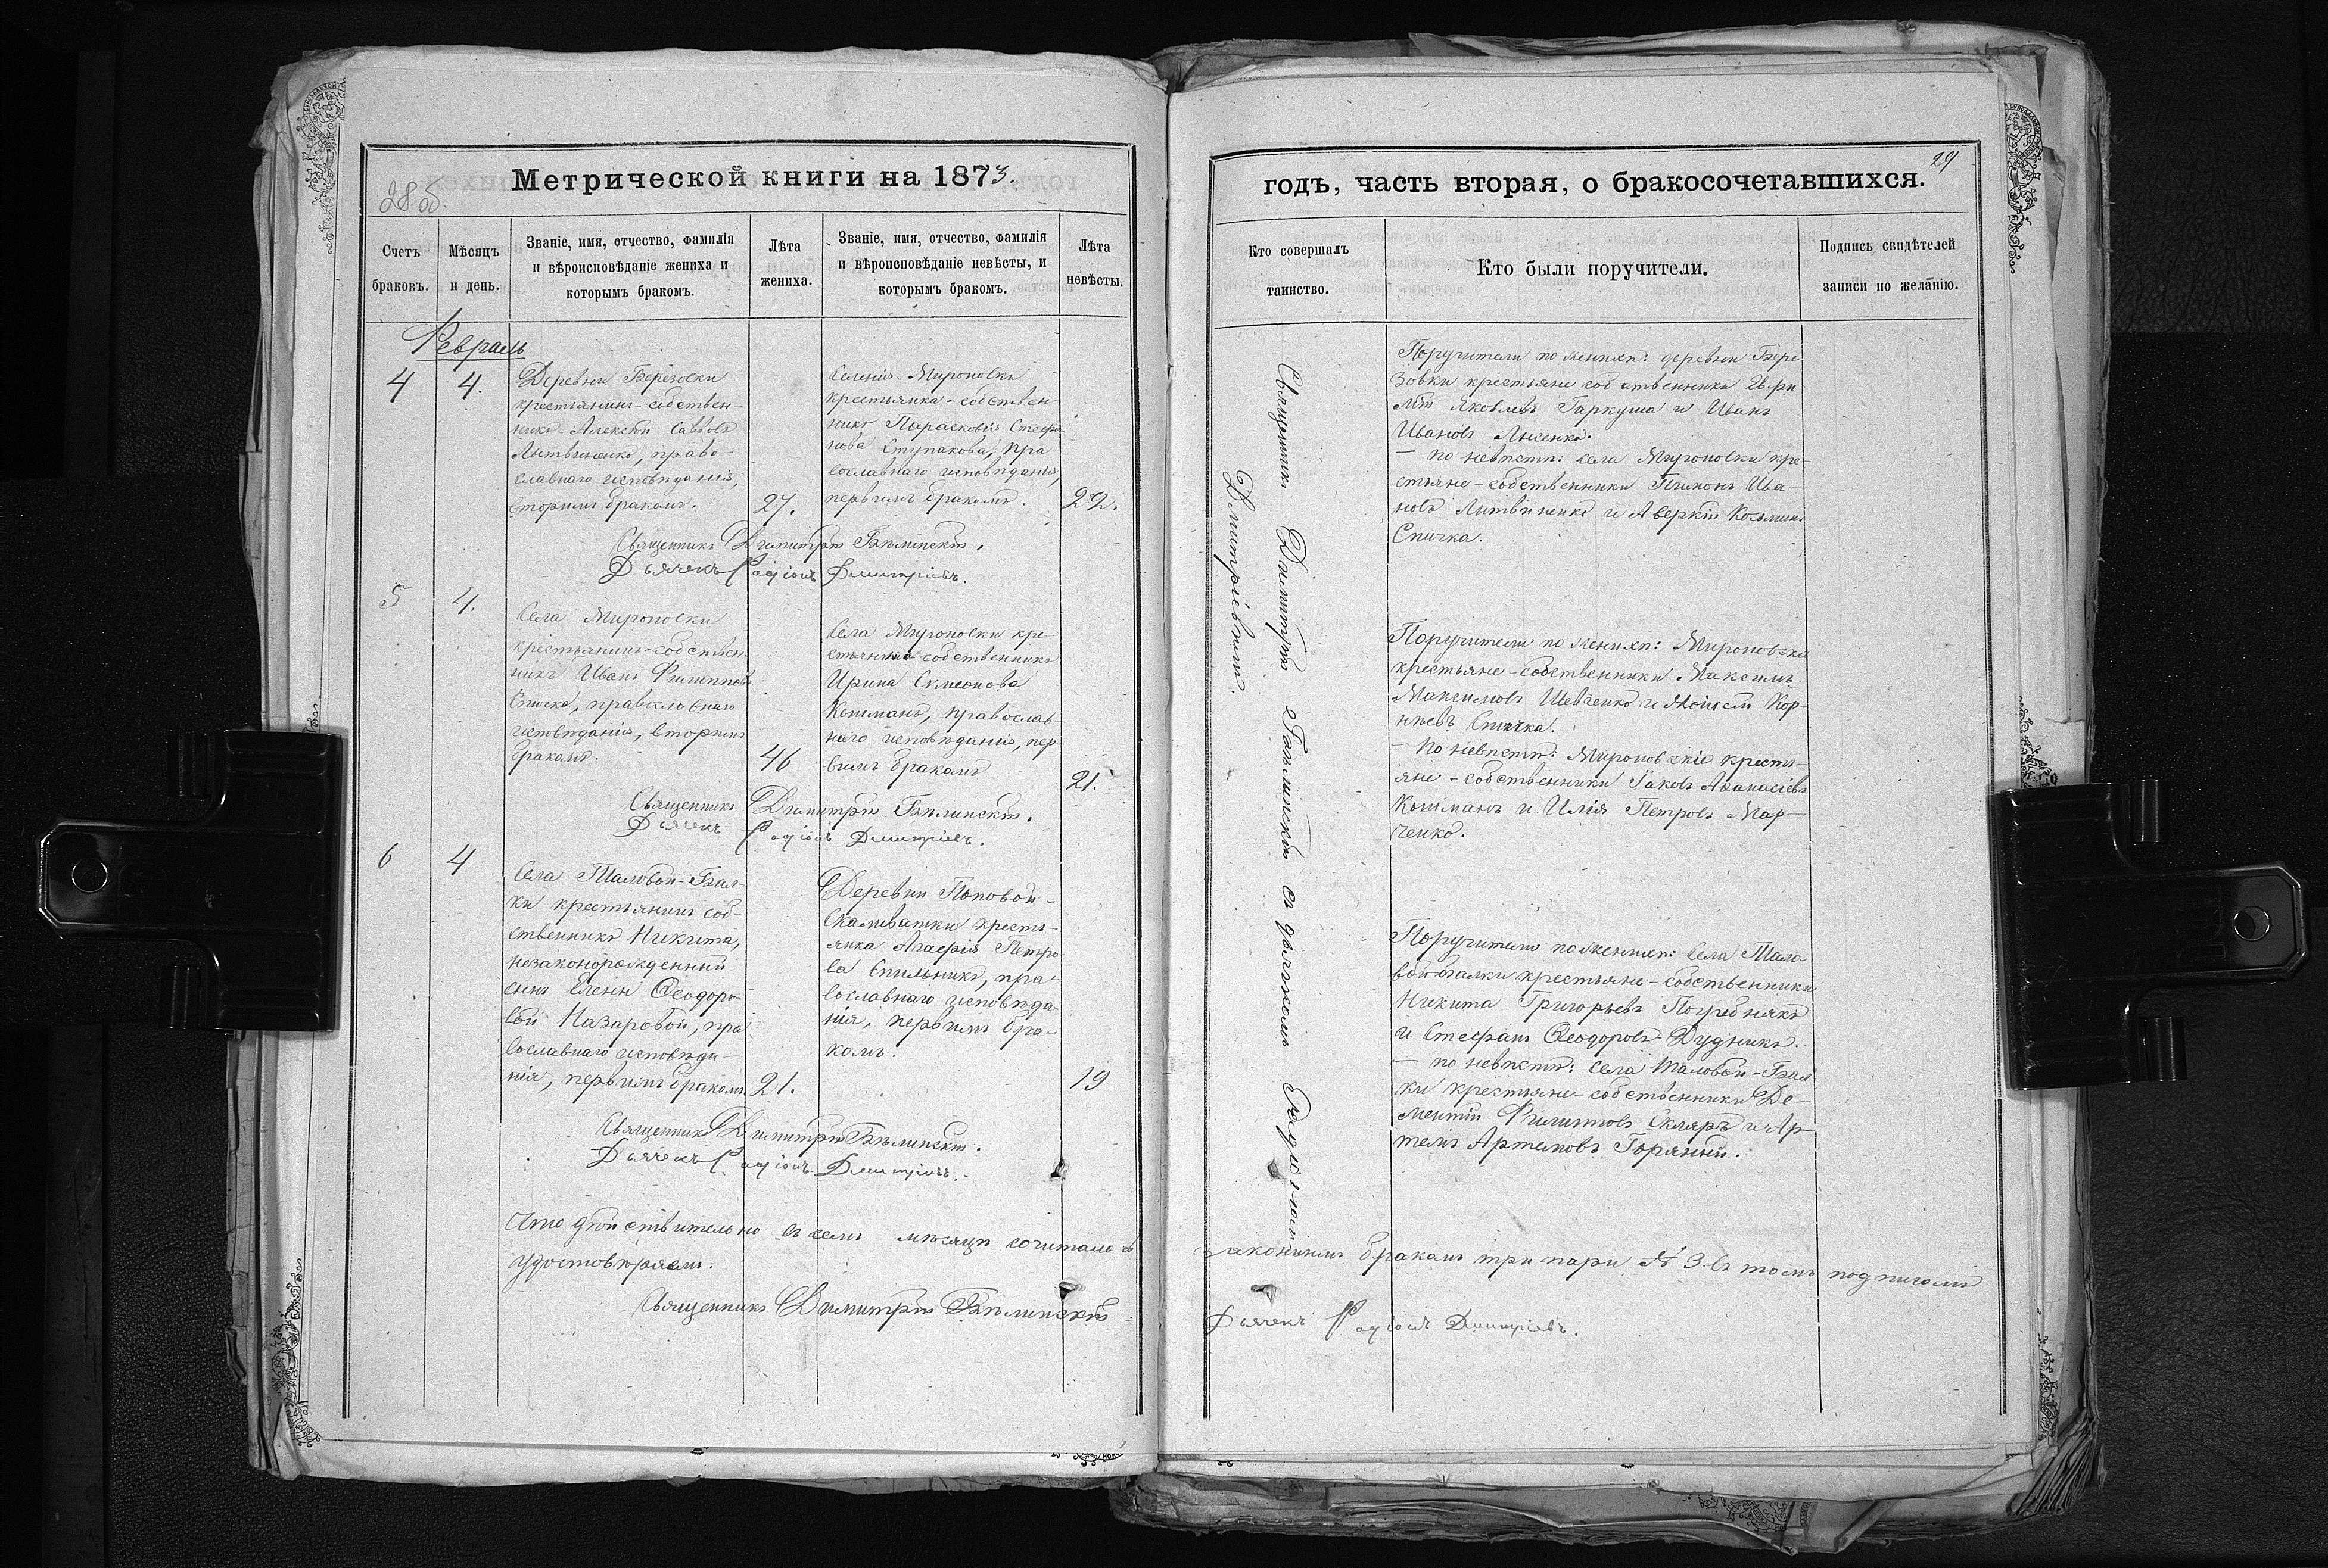 Метрической книги на 1873.
28 об.
Счетъ браковъ.
Мѣсяцъ и день.
Званіе, имя, отчество, фамилія
и вѣроисповѣданіе жениха и
которымъ бракомъ.
Лѣта жениха.
Званіе, имя, отчество, фамилія
и вѣроисповѣданіе невѣсты, и
которымъ бракомъ.
Лѣта невѣсты.
Февраль
4
4.
Деревни Березовки
крестьянинъ-собствен-
никъ Алексѣй Саввовъ
Литвиненко, право-
славнаго исповѣданія,
вторымъ бракомъ.
27.
Селенія Мироновки
крестьянка-собствен-
никъ Парасковія Стефа-
нова Ступакова, пра
вославнаго исповѣданія,
первымъ бракомъ.
22.
Священникъ Димитрій Бѣлинскій.
Дьячекъ Родіонъ Дмитріевъ.
5
4.
Села Мироновки
крестьянинъ-собствен-
никъ Иванъ Филипповъ
Спичка, православнаго
исповѣданія, вторымъ
бракомъ.
46
Села Мироновки кре-
стьянка-собственникъ
Ирина Симеонова
Кошманъ, православ-
наго исповѣданія, пер-
вымъ бракомъ
21.
Священникъ Димитрій Бѣлинскій.
Дьячекъ Родіонъ Дмитріевъ.
6
4
Села Таловой-Бал-
ки крестьянинъ соб-
ственникъ Никита,
незаконорожденный
сынъ Елены Ѳеодоро-
вой Назаровой, пра
вославнаго исповѣда-
нія, первымъ бракомъ
21.
Деревни Поповой-
Скаливатки кресть-
янка Агафія Петро-
ва Спильникъ, пра-
вославнаго исповѣда-
нія, первымъ бра-
комъ.
19
Священникъ Димитрій Бѣлинскій.
Дьячекъ Родіонъ Дмитріевъ.
Что дѣйствительно въ семъ мѣсяцѣ сочитало въ
удостовѣряемъ.
Священникъ Димитрій Бѣлинскій
годъ, часть вторая, о бракосочетавшихся.
29
Кто совершалъ таинство.
Кто были поручители.
Подпись свидѣтелей
записи по желанію.
Священникъ Димитрій Бѣлинскій съ дьячкомъ Родіономъ
Дмитріевымъ.
Поручители по женихѣ: деревни Бере
зовки крестьяне собственники Ефри
мъ Яковлевъ Гаркуша и Иванъ
Ивановъ Лысенко.
— по невѣстѣ: села Мироновки кре-
стьяне-собственники Пимонъ Ива-
новъ Литвиненко и Аверкій Козьминъ
Спичка.
Поручители по женихѣ: Мироновскіе
крестьяне-собственники Максимъ
Максимовъ Шевченко и Моисей Кор-
нѣевъ Спичка.
— по невѣстѣ: Мироновскіе кресть-
яне-собственники Іаковъ Аѳанасіевъ
Кошманъ и Илія Петровъ Мар-
ченко.
Поручители по женихѣ: села Тало
вой балки крестьяне-собственники
Никита Григорьевъ Погребнякъ
и Стефанъ Ѳеодоровъ Дудникъ.
— по невѣстѣ: села Таловой-Бал-
ки крестьяне-собственники Де-
ментій Филипповъ Скляръ и Ар
темъ Артемовъ Горяный.
законнымъ бракомъ три пары № 3. въ томъ подписомъ
Дьячекъ Родіонъ Дмитріевъ.